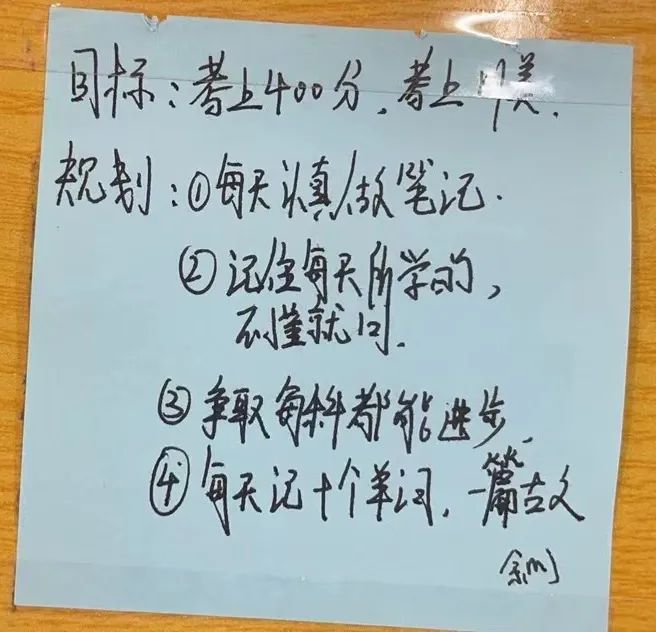 目标：考上400分，考上川美.
规划：①每天认真做笔记.
②记住每天所学的，
不懂就问.
③争取每科都能进步.
④每天记十个单词，一篇古文